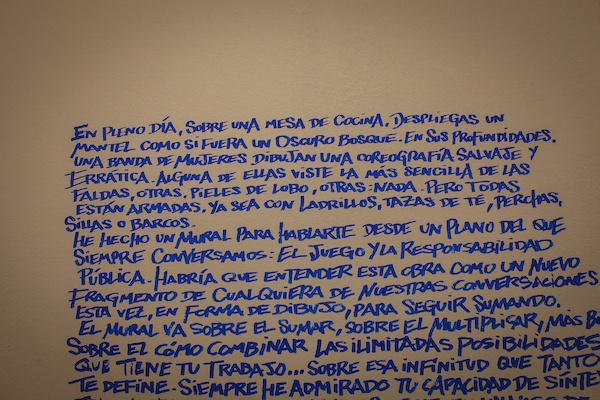 EN PLENO DÍA, SOBRE UNA MESA DE COCINA, DESPLIEGAS UN
MANTEL COMO SI FUERA UN OSCURO BOSQUE. EN SUS PROFUNDIDADES,
UNA BANDA DE MUJERES DIBUJAN UNA COREOGRAFÍA SALVAJE Y
ERRÁTICA. ALGUNA DE ELLAS VISTE LA MÁS SENCILLA DE LAS
FALDAS, OTRAS, PIELES DE LOBO, OTRAS: NADA. PERO TODAS
ESTÁN ARMADAS. YA SEA CON LADRILLOS, TAZAS DE TÉ, PERCHAS,
SILLAS O BARCOS.
HE HECHO UN MURAL PARA HABLARTE DESDE UN PLANO DEL QUE
SIEMPRE CONVERSAMOS: EL JUEGO Y LA RESPONSABILIDAD
PÚBLICA. HABRÍA QUE ENTENDER ESTA OBRA COMO UN NUEVO
FRAGMENTO DE CUALQUIERA DE NUESTRAS CONVERSACIONES
ESTA VEZ, EN FORMA DE DIBUJO, PARA SEGUIR SUMANDO.
EL MURAL VA SOBRE EL SUMAR, SOBRE EL MULTIPLICAR, MÁS B
SOBRE EL CÓMO COMBINAR LAS ILIMITADAS POSIBILIDADES
QUE TIENE TU TRABAJO... SOBRE ESA INFINITUD QUE TANTO
TE DEFINE. SIEMPRE HE ADMIRADO TU CAPACIDAD DE SÍNTE